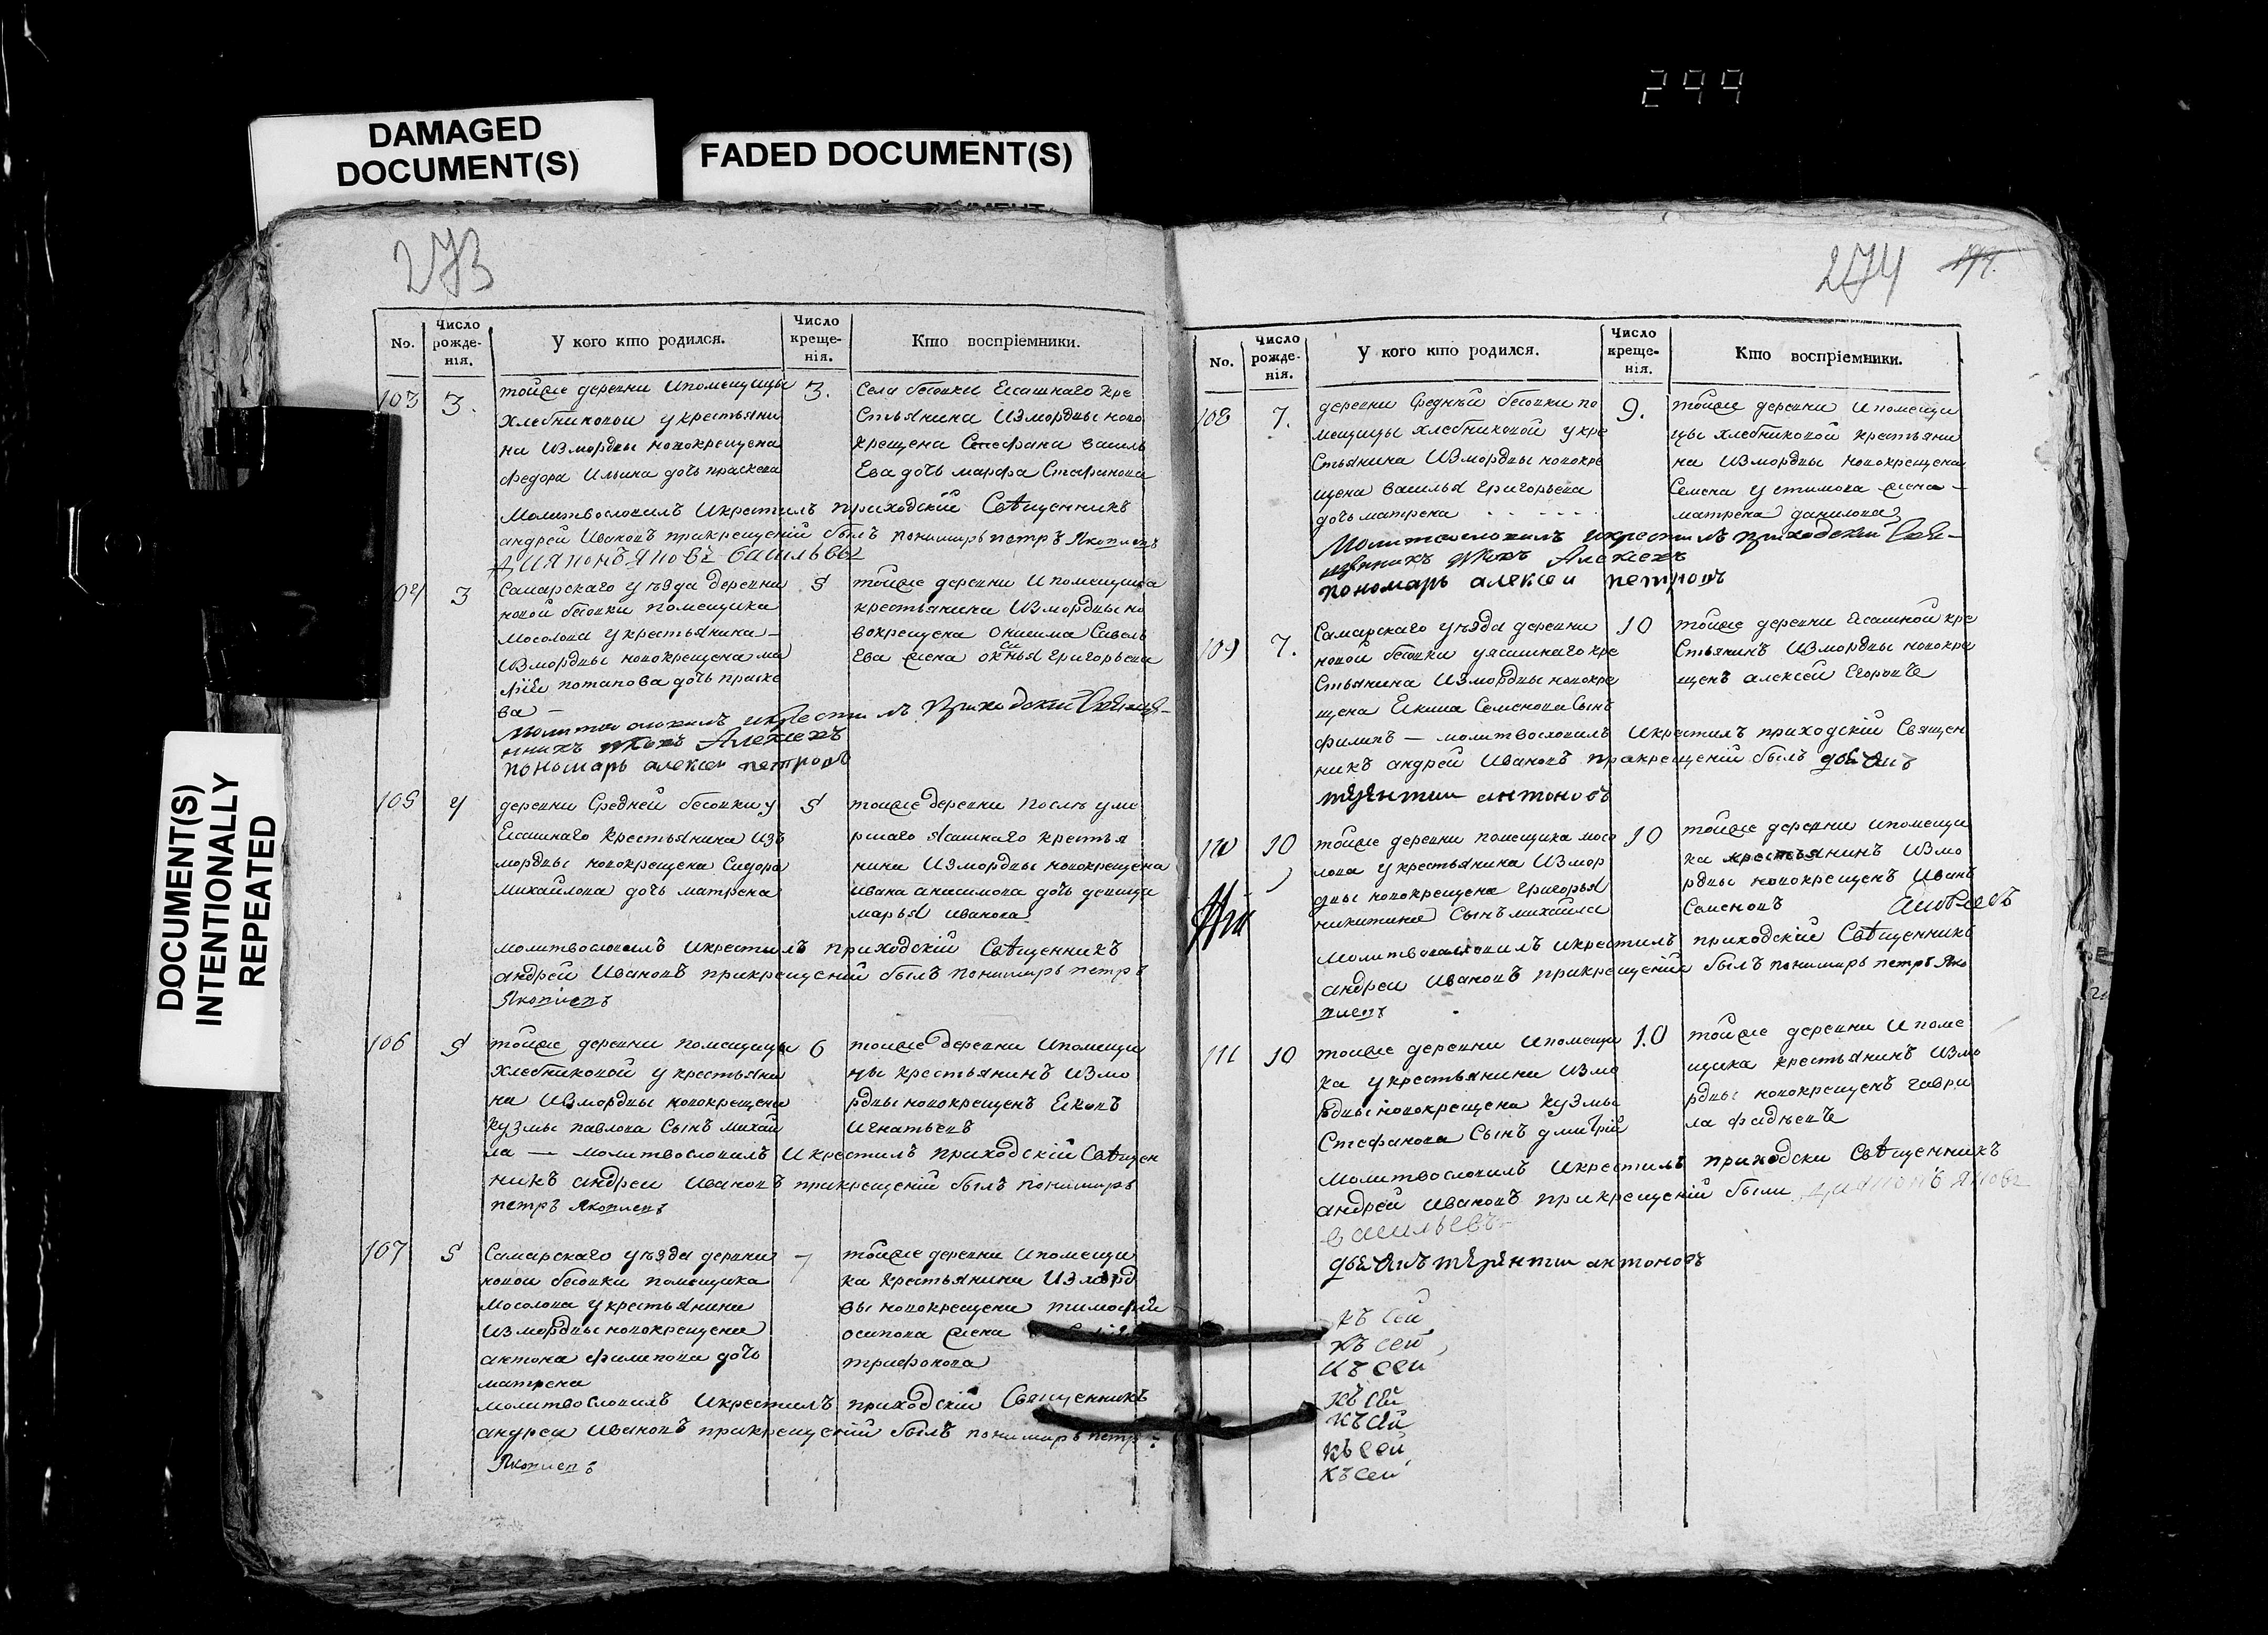 299
DAMAGED
DOCUMENT(S)
FADED DOCUMENT(S)
DOCUMENT(S)
INTENTIONALLY
REPEATED
273
No.
Число рожде-нія.
У кого кто родился.
Число креще-нія.
Кто воспріемники.
103 3. 3.
тойже деревни ипомещицы
хлебниковой укрестьяни
на измордвы новокрещена
федора ильина дочь праскева
села бесовки ясашнаго кре
стьянина измордвы ново
крещена стефана василь
ева дочь марфа стефанова
молитвословилъ икрестилъ приходскій священникъ
андрей ивановъ прикрещеній былъ пономарь петръ яковлевъ
04 3 5
самарскаго уезда деревни
новой бесовки помещика
мосолова укрестьянина
измордвы новокрещена
потапова дочь праске
ва
тойже деревни ипомещика
крестьянина измордвы но
вокрещена онисима савель
ева жена оксинья григорьева
молитвословилъ икрестилъ приходскій
Алексеевъ
пономарь алексей петровъ
105 4 5
деревни средней бесовки у
ясашнаго крестьянина изъ
мордвы новокрещена сидора
михайлова дочь матрена
тойже деревни после уме
ршаго ясашнаго крестья
нина измордвы новокрещена
ивана анисимова дочь девица
марья иванова
молитвословилъ икрестилъ приходскій священникъ
андрей ивановъ прикрещеній былъ пономарь петръ
яковлевъ
106 5 6
тойже деревни помещицы
хлебниковой укрестьяни
на измордвы новокрещена
кузмы павлова сынъ михай
ла — молитвословилъ икрестилъ приходскій священ
тойже деревни ипомещи
цы крестьянинъ измо
рдвы новокрещенъ яковъ
игнатьевъ
никъ андрей ивановъ прикрещеній былъ пономарь
петръ яковлевъ
107 5 7
самарскаго уезда деревни
новой бесовки помещика
мосолова укрестьянина
измордвы новокрещена
антона филипова дочь
матрена
тойже деревни ипомещи
ка крестьянина изморд
вы новокрещена тимофея
осипова жена
трифонова
молитвословилъ икрестилъ приходскій священникъ
андрей ивановъ прикрещеній былъ пономарь петръ
яковлевъ
274
No.
Число рожде-нія.
У кого кто родился.
Число креще-нія.
Кто воспріемники.
108 7. 9.
деревни средней бесовки по
мещицы хлебниковой укре
стьянина измордвы новокре
щена василья григорьева
дочь матрена
тойже деревни ипомещи
цы хлебниковой крестьяни
на измордвы новокрещена
семена устимова жена
матрена данилова
молитвословилъ икрестилъ приходскій
Алексеевъ
пономарь алексей петровъ
109 7. 10
самарскаго уезда деревни
новой бесовки уясашнаго кре
стьянина измордвы новокре
щена якима семенова сынъ
филипъ — молитвословилъ икрестилъ приходскій священ
тойже деревни ясашной кре
стьянинъ измордвы новокре
щенъ алексей егоровъ
никъ андрей ивановъ прикрещеній былъ дьячикъ
терентии антоновъ
110 10 10
тойже деревни помещика мосо
лова укрестьянина измор
двы новокрещена григорья
никитина сынъ михайла
тойже деревни ипомещи
ка крестьянинъ измо
рдвы новокрещенъ иванъ
семеновъ
молитвословилъ икрестилъ приходскій священникъ
андрей ивановъ прикрещеній былъ пономарь петръ яко
влевъ
111 10 10
тойже деревни ипомещи
ка укрестьянина измо
рдвы новокрещена кузмы
стефанова сынъ дмитрій
тойже деревни ипоме
щика крестьянинъ измо
рдвы новокрещенъ гаври
ла фадеевъ
молитвословилъ икрестилъ приходски священникъ
андрей ивановъ прикрещеній были
васильевъ
дьячикъ терентии антоновъ
къ сей
къ сей
къ сей
къ сей
къ сей
къ сей
къ сей